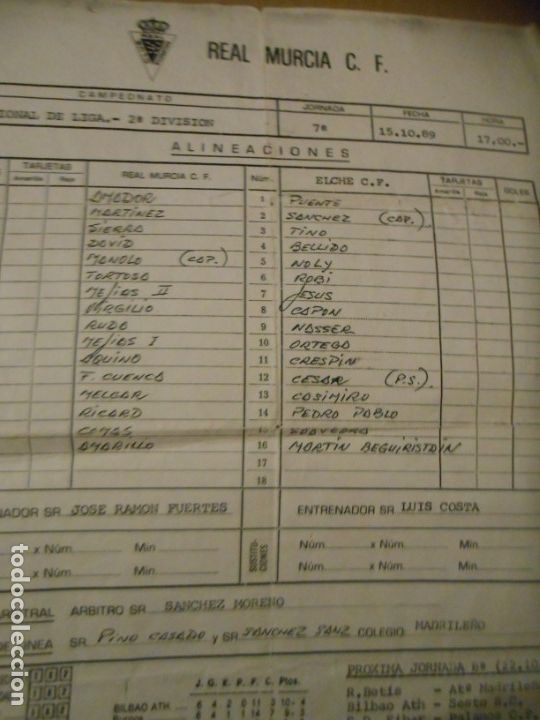 REAL MURCIA C. F.
CAMPEONATO JORNADA FECHA HORA
IONAL DE LIGA.- 2ª DIVISION 7ª 15.10.89 17,00.-
ALINEACIONES
TARJETAS REAL MURCIA C. F. Núm. ELCHE C.F. TARJETAS GOLES
Amarilla Roja Amarilla Roja
AMADOR 1 PUENTE
MARTINEZ 2 SANCHEZ (CAP.)
SIERRA 3 TINO
DAVID 4 BELLIDO
MANOLO (CAP.) 5 NOLY
TORTOSA 6 ROBI
MEJIAS II 7 JESUS
VIRGILIO 8 CAPON
RUDA 9 NASSER
MEJIAS I 10 ORTEGA
AQUINO 11 CRESPIN
F. CUENCA 12 CESAR (P.S.)
MELGAR 13 CASIMIRO
RICARD 14 PEDRO PABLO
COMAS 15 SAAVEDRA
AMARILLO 16 MARTIN BEGUIRISTAIN
17
18
NADOR SR JOSE RAMON FUERTES ENTRENADOR SR LUIS COSTA
x Núm. Min. SUSTITUCIONES Núm. x Núm. Min.
x Núm. Min. Núm. x Núm. Min.
ARBITRO SR SANCHEZ MORENO
SR PINO CASADO y SR SANCHEZ SANZ COLEGIO MADRILEÑO
1 X 2 J. G. E. P. F. C. Ptos. PROXIMA JORNADA 8ª (22.10
BILBAO ATH 6 4 2 0 11 3 10+4 R.Betis - Atº Madrileñ
Burgos Bilbao Ath - Sestao S.C.
todocoleccion
todocoleccion.net